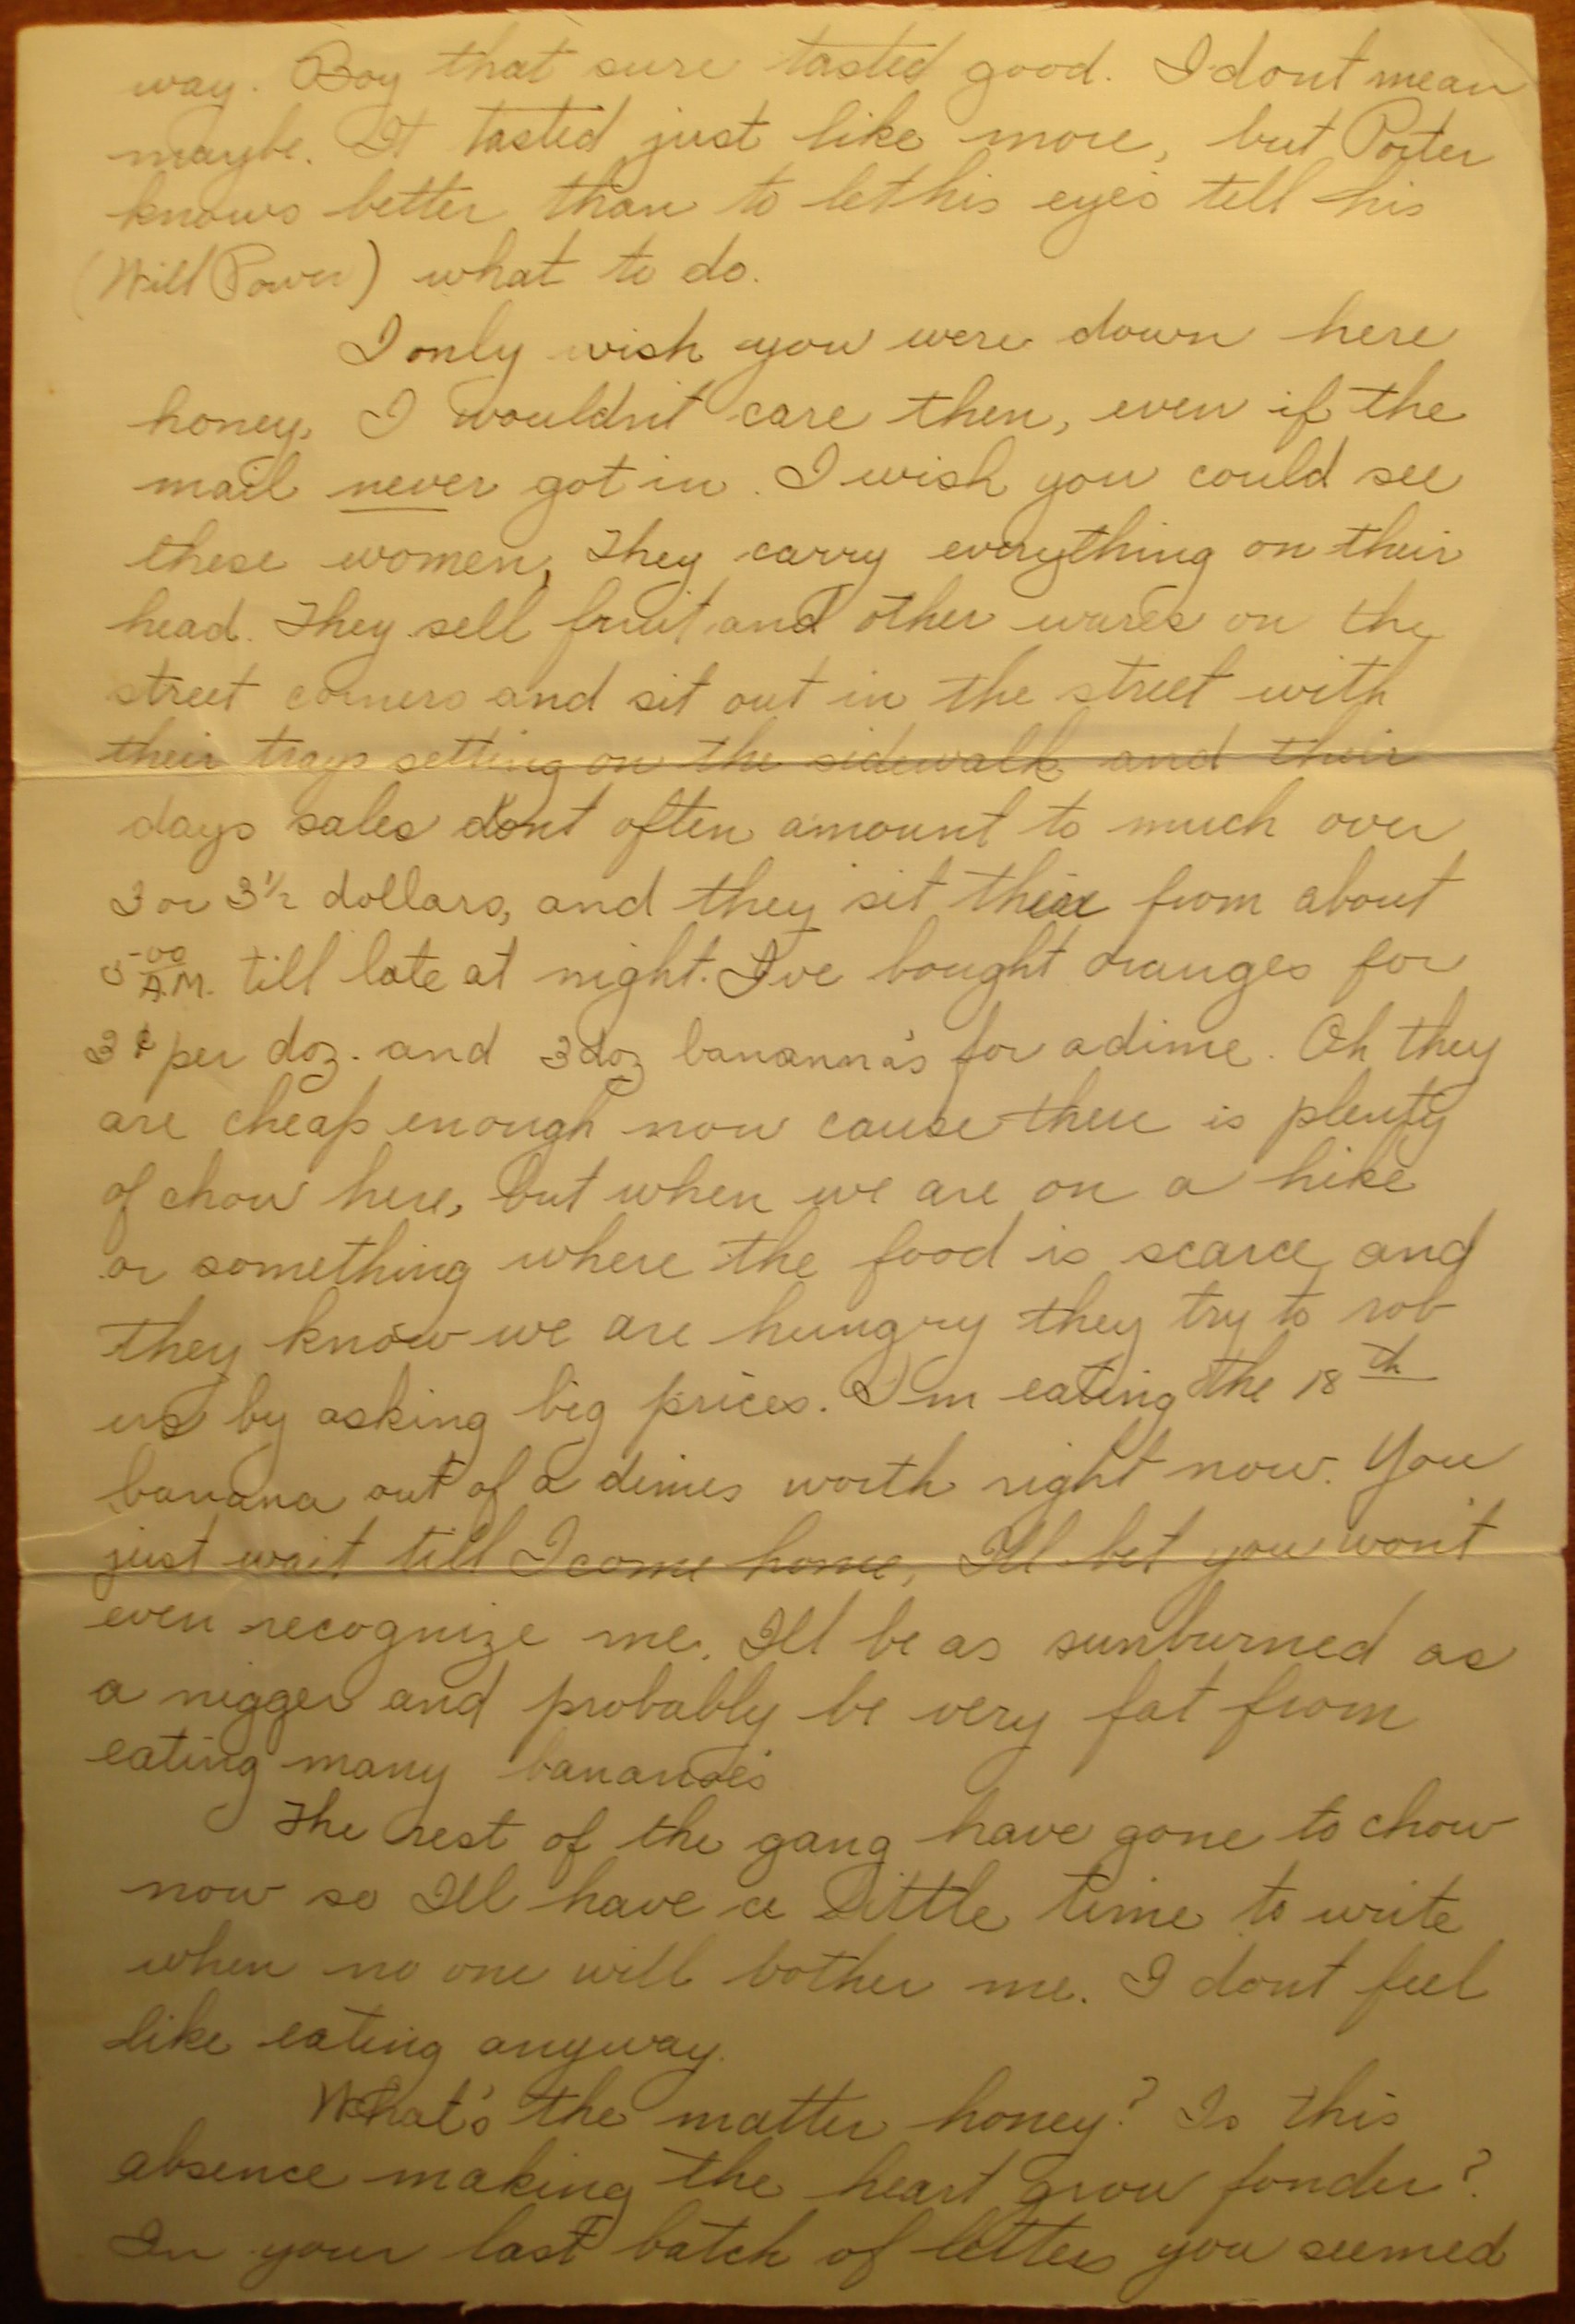 way. Boy that sure tasted good. I dont mean
maybe. It tasted just like more, but Porter
knows better than to let his eyes tell his
(Will Power) what to do.
I only wish you were down here
honey, I wouldn't care then, even if the
mail never got in. I wish you could see
these women, They carry everything on their
head. They sell fruit and other wares on the
street corners and sit out in the street with
their trays setting on the sidewalk and their
days sales dont often amount to much over
3 or 3½ dollars, and they sit their from about
5:00 A.M. till late at night. I've bought oranges for
3¢ per doz. and 3 doz bananna's for a dime. Oh they
are cheap enough now cause there is plenty
of chow here, but when we are on a hike
or something where the food is scarce and
they know we are hungry they try to rob
us by asking big prices. I'm eating the 18th
banana out of a dimes worth right now. You
just wait till I come home, I'll bet you won't
even recognize me. Ill be as sunburned as
a nigger and probably be very fat from
eating many bananas
The rest of the gang have gone to chow
now so Ill have a little time to write
when no one will bother me. I dont feel
like eating anyway.
What's the matter honey? Is this
absence making the heart grow fonder?
In your last batch of letters you seemed